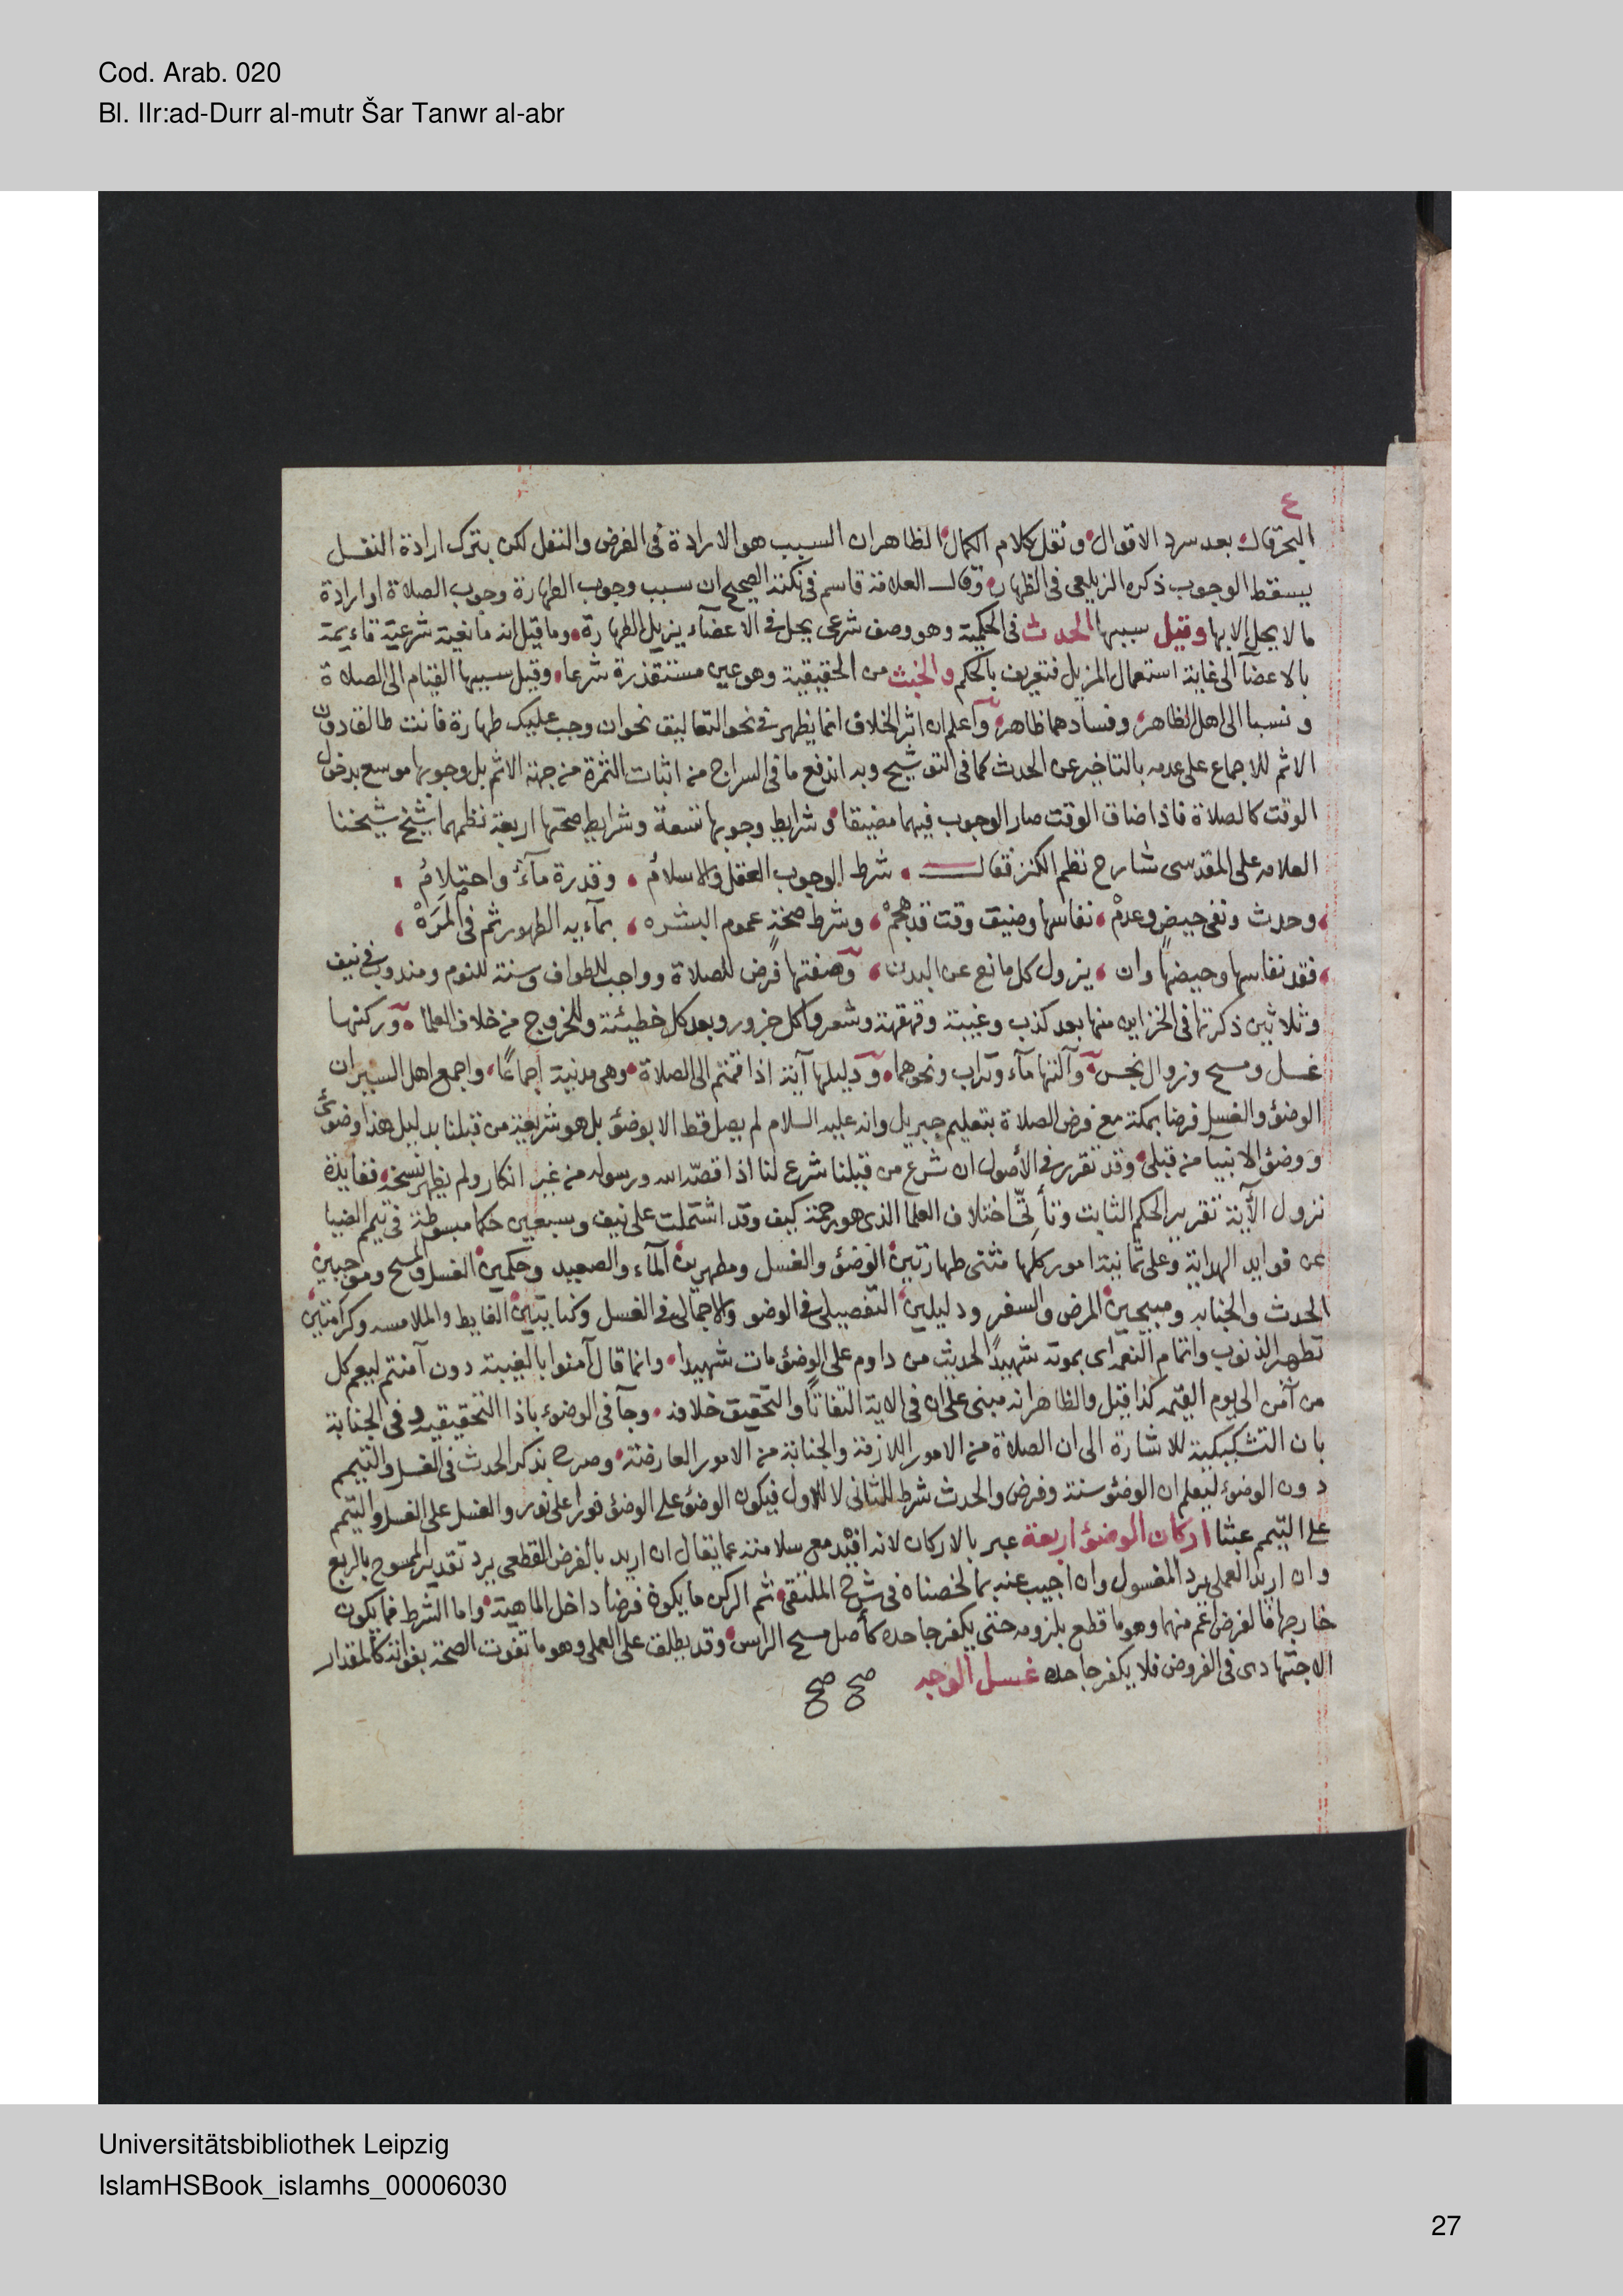 Cod. Arab. 020
Bl. IIr:ad-Durr al-mutr Šar Tanwr al-abr
٤
البحر قال بعد سرد الاقوال ونقل كلام الكمال الظاهر ان السبب هو الارادة فى الفرض والنفل لكن بترك ارادة النفل
يسقط الوجوب ذكره الزيلعى فى الظهار وقال العلامة قاسم فى نكته الصحيح ان سبب وجوب الطهارة وجوب الصلاة او ارادة
ما لا يحل الا بها وقيل سببها الحدث فى الحكمية وهو وصف شرعى يحل فى الاعضآء يزيل الطهارة وما قيل انه مانعية شرعية قاءيمة
بالاعضآ الى غاية استعمال المزيل فتعريف بالحكم والخبث من الحقيقية وهو عين مستقذرة شرعا وقيل سببها القيام الى الصلاة
و نسبا الى اهل الظاهر وفسادهما ظاهر وآعلم ان اثر الخلاف انما يظهر فى نحو التعاليق نحو ان وجب عليك طهارة فانت طالق دون
الاثم للاجماع على عدمه بالتاخير عن الحدث كما فى التوشيح وبه اندفع ما فى السراج من اثبات الثمرة من جهة الاثم بل وجوبها موسع بدخول
الوقت كالصلاة فاذا ضاق الوقت صار الوجوب فيهما مضيقا و شرايط وجوبها تسعة وشرايط صحتها اربعة نظمهما شيخ شيخنا
العلامه على المقدسى شارح نظم الكنز فقال شرط الوجوب العقل والاسلام وقدرة مآء واحتلام
وحدث ونفى حيض وعدم نفاسها وضيق وقت قد هجم وشرط صحة عموم البشره بمآءيه الطهور ثم فى المره
فقد نفاسها وحيضها وان يزول كل مانع عن البدن وصفتها فرض للصلاة وواجب للطواف وسنة للنوم ومندوب فى نيف
وثلاثين ذكرتها فى الخزاين منها بعد كذب وغيبة وقهقهة وشعر واكل جزور وبعد كل خطيئة وللخروج من خلاف العلمآ وركنها
غسل ومسح وزوال نجس وآلتها مآء وتراب ونحوهما ودليلها آية اذا قمتم الى الصلاة وهى مدنية اجماعًا واجمع اهل السير ان
الوضؤ والغسل فرضا بمكة مع فرض الصلاة بتعليم جبريل وانه عليه السلام لم يصل قط الا بوضؤ بل هو شريعة من قبلنا بدليل هذا وضوئى
ووضؤ الانبيآ من قبلى وقد تقرر فى الأصول ان شرع من قبلنا شرع لنا اذا قصّه الله ورسوله من غير انكار ولم يظهر نسخه ففايدة
نزول الآية تقرير الحكم الثابت وتأتّى اختلاف العلمآ الذى هو رحمة كيف وقد اشتملت على نيف وسبعين حكما مبسوطة فى تيمم الضيا
عن فوايد الهداية وعلى ثمانية امور كلها مثنى طهارتين الوضؤ والغسل ومطهرين المآء والصعيد وحكمين الغسل والمسح وموجبين
الحدث والجنابه ومبيحين المرض والسفر ودليلين التفصيلى فى الوضو والاجمالى فى الغسل وكنايتين الغايط والملامسه وكرامتين
تطهير الذنوب واتمام النعمه اى بموته شهيدًا لحديث من داوم على الوضؤ مات شهيدا وانما قال آمنوا بالغيبة دون آمنتم ليعم كل
من آمن الى يوم القيمه كذا قيل والظاهر انه مبنى على ان فى الاية التفاتًا والتحقيق خلافه وجآ فى الوضوء باذا التحقيقيه وفى الجنابة
بان التشكيكية للاشارة الى ان الصلاة من الامور اللازمة والجنابة من الامور العارضة وصرح بذكر الحدث فى الغسل والتيمم
دون الوضوء ليعلم ان الوضؤ سنة وفرض والحدث شرط للثانى لا للاول فيكون الوضؤ على الوضؤ نورا على نور والغسل على الغسل والتيمم
على التيمم عبثا اركان الوضؤ اربعة عبر بالاركان لانه افيد مع سلامته عما يقال ان اريد بالفرض القطعى يرد تقدير الممسوح بالربع
وان اريد العملى يرد المغسول وان اجيب عنه بما لخصناه فى شرح الملتقى ثم الركن ما يكون فرضا داخل الماهية واما الشرط فما يكون
خارجها فالفرض اعم منهما وهو ما قطع بلزومه حتى يكفر جاحده كأصل مسح الراس وقد يطلق على العملى وهو ما تفوت الصحة بفواته كالمقدار
الاجتهادى فى الفروض فلا يكفر جاحده غسل الوجه صح صح
Universitätsbibliothek Leipzig
IslamHSBook_islamhs_00006030
27